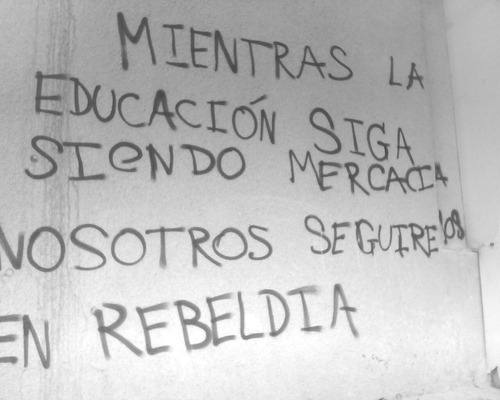 MIENTRAS LA
EDUCACIÓN SIGA
SIeNDO MERCACIA
NOSOTROS SEGUIRE'08
EN REBELDIA